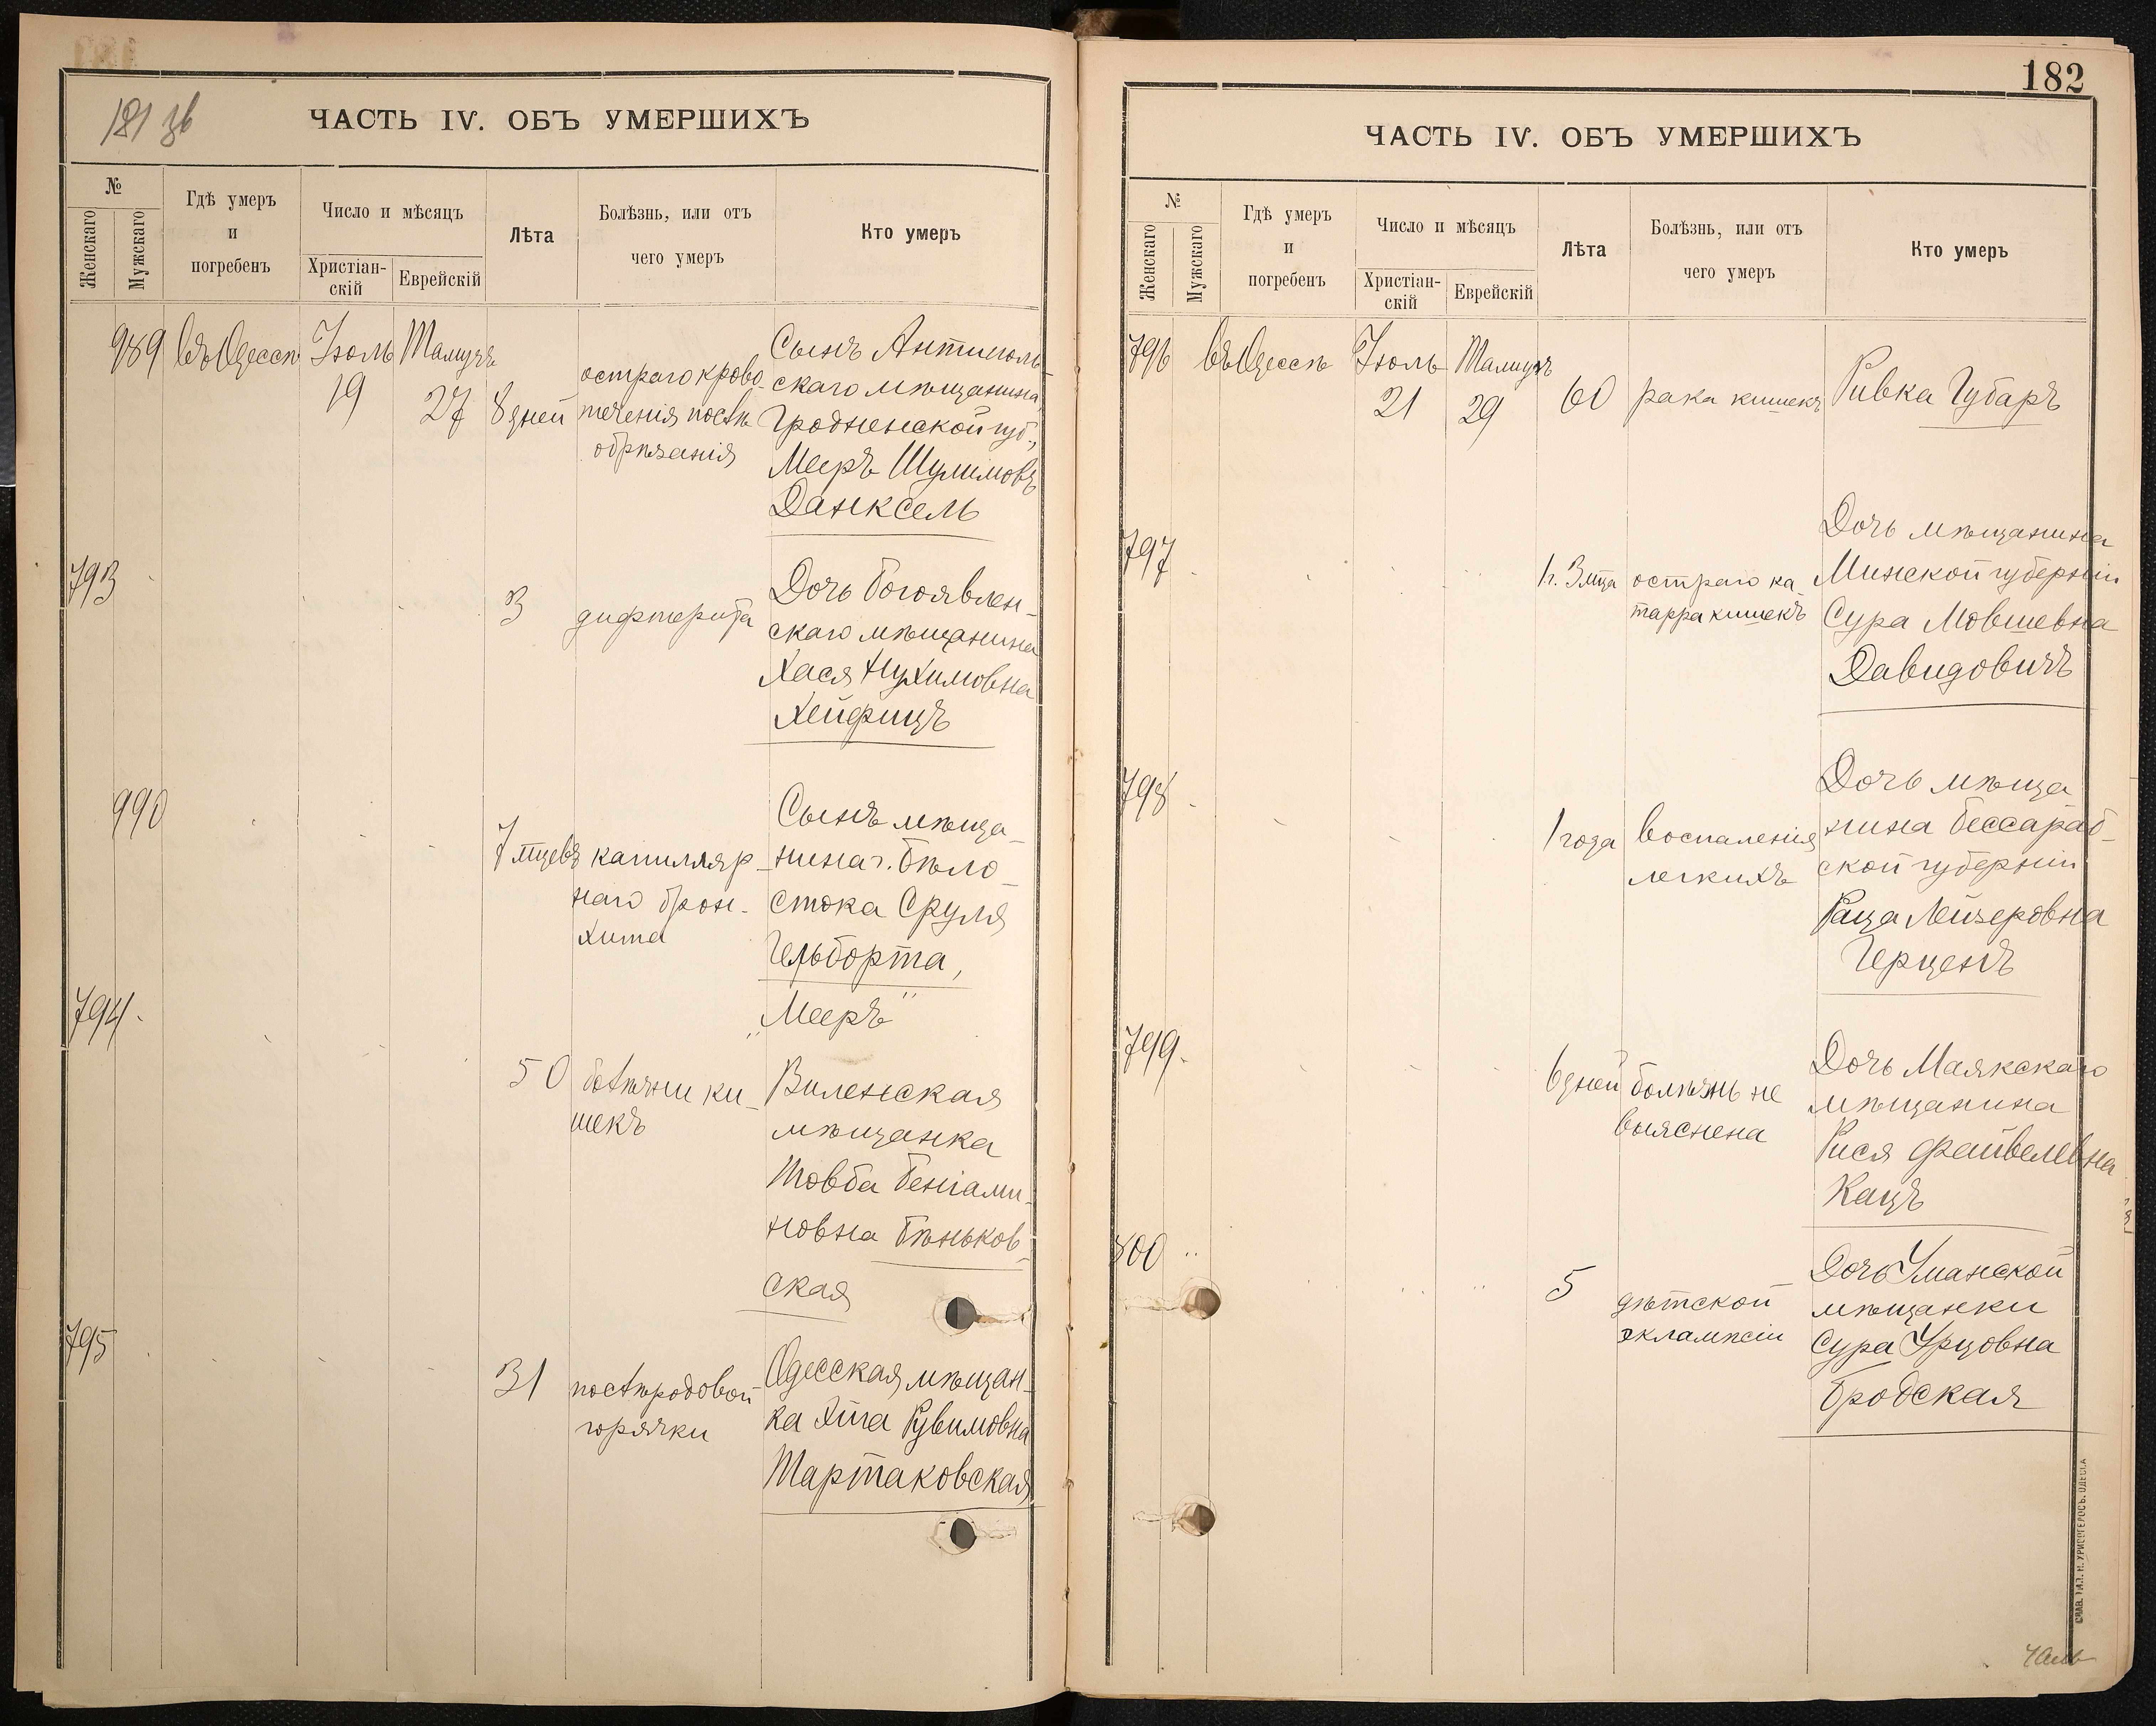 181 зв
ЧАСТЬ IV. ОБЪ УМЕРШИХЪ
№
Женскаго
Мужскаго
Гдѣ умеръ
и
погребенъ
Число и мѣсяцъ
Христіан-
скій
Еврейскій
Лѣта
Болѣзнь, или отъ
чего умеръ
Кто умеръ
989 въ Одессѣ Іюль 19 Тамузъ 27 8 дней
остраго крово-
теченія послѣ
обрѣзанія
Сынъ Антиполь-
скаго мѣщанина,
Гродненской губ.,
Мееръ Шулимовъ
Данксель
793
3 дифтерита
Дочь Богоявлен-
скаго мѣщанина
Хася Нухимовна
Хейфицъ
990
7 мцевъ капилляр-
наго брон-
хита
Сынъ мѣща-
нина г. Бѣло-
стока Сруля
Гельборта,
„Мееръ"
794.
50 болѣзни ки-
шекъ
Виленская
мѣщанка
Товба Беніами-
новна Бѣньков-
ская
795
31 послѣродовой
горячки
Одесская мѣщан-
ка Хта Рувимовна
Тартаковская
182
ЧАСТЬ IV. ОБЪ УМЕРШИХЪ
№
Женскаго
Мужскаго
Гдѣ умеръ
и
погребенъ
Число и мѣсяцъ
Христіан-
скій
Еврейскій
Лѣта
Болѣзнь, или отъ
чего умеръ
Кто умеръ
796 въ Одессѣ Іюль 21 Тамузъ 29 60 рака кишекъ Ривка Губаръ
797
1 г. 3 мца остраго ка-
тарра кишекъ
Дочь мѣщанина
Минской губерніи
Сура Мовшевна
Давидовичъ
798
1 года воспаленія
легкихъ
Дочь мѣща
нина Бессараб-
ской губерніи
Раца Лейзеровна
Герценъ
799.
6 дней болѣзнь не
выяснена
Дочь Маякскаго
мѣщанина
Рися Файвелевна
Кацъ
800
5 дѣтской
эклампсіи
Дочь Уманской
мѣщанки
Сура Урцовна
Бродская